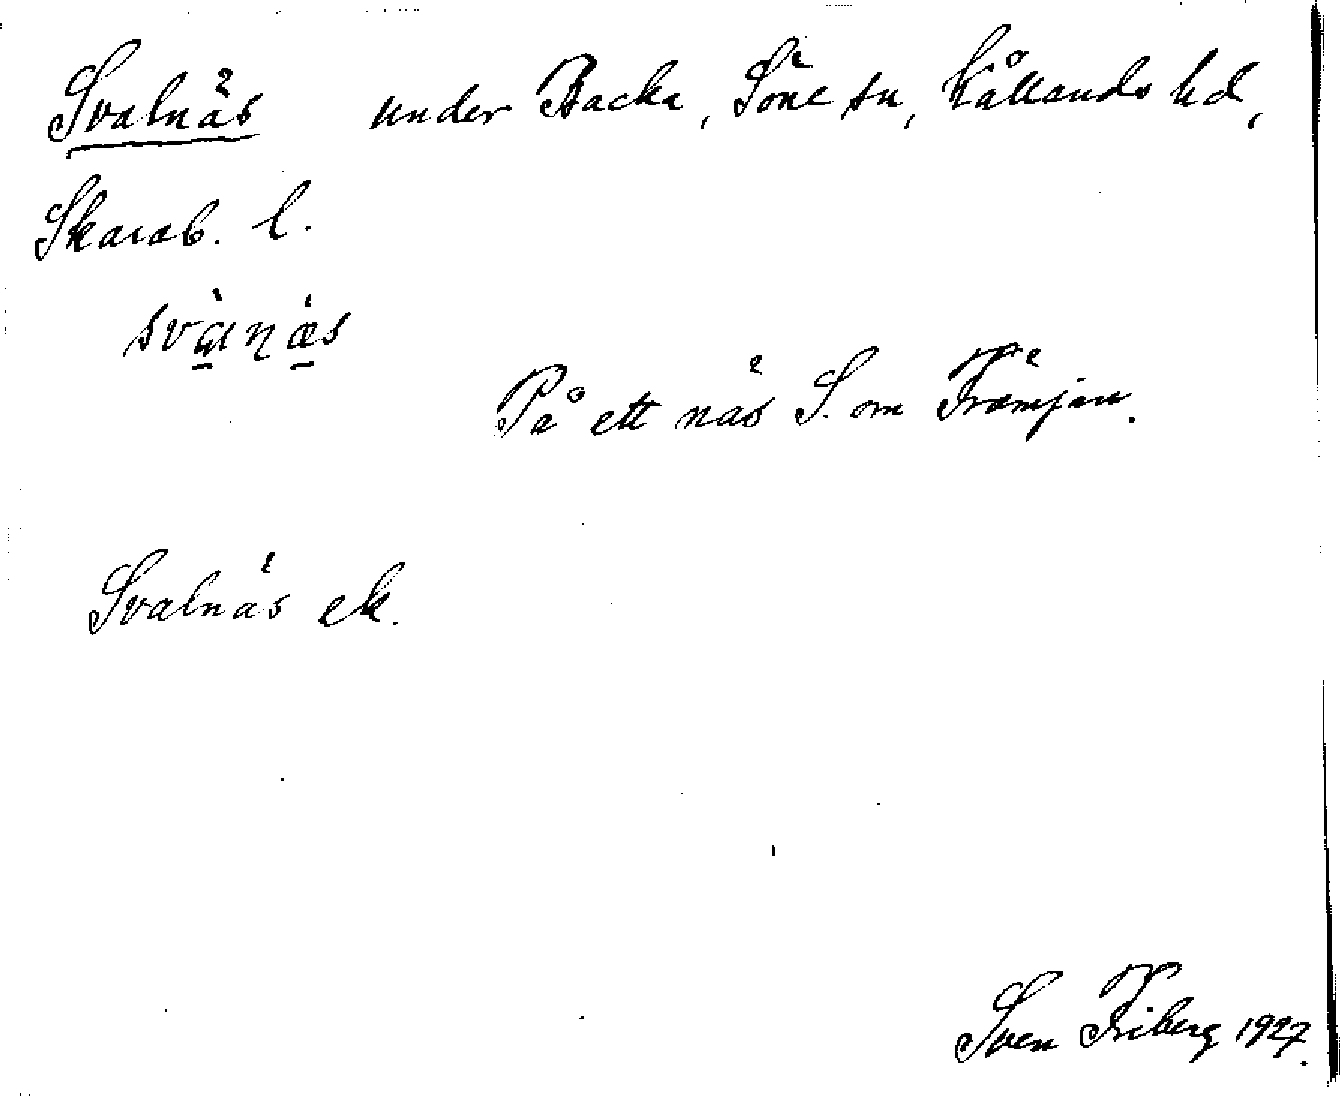 Svalnäs under Backa, Söne sn, Kållands hd,
Skarab. l.
På ett näs S. om Främjan.
Svalnäs ek.
Sven Friberg 1927.